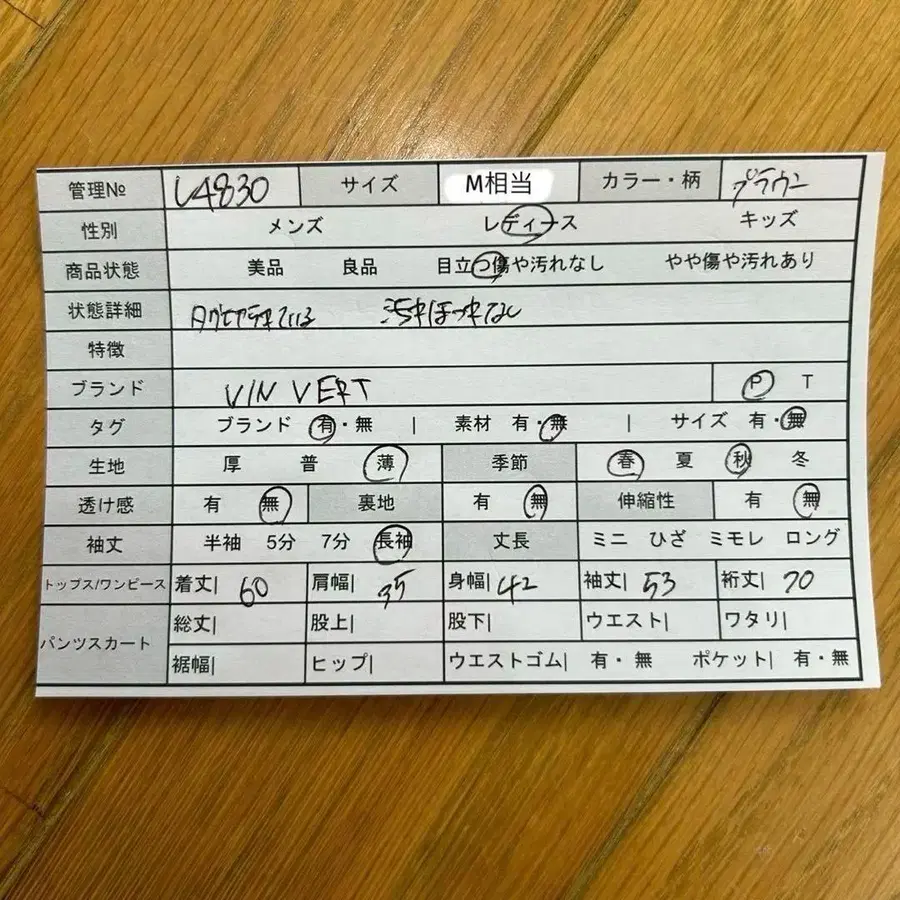 管理№ L4830 サイズ M相当 カラー・柄 ブラウン
性別 メンズ レディース キッズ
商品状態 美品 良品 目立つ傷や汚れなし やや傷や汚れあり
状態詳細 汚れほつれなし
特徴
ブランド VIN VERT P T
タグ ブランド 有・無 | 素材 有・無 | サイズ 有・無
生地 厚 普 薄 季節 春 夏 秋 冬
透け感 有 無 裏地 有 無 伸縮性 有 無
袖丈 半袖 5分 7分 長袖 丈長 ミニ ひざ ミモレ ロング
トップス/ワンピース 着丈| 60 肩幅| 35 身幅| 42 袖丈| 53 裄丈| 70
パンツスカート 総丈| 股上| 股下| ウエスト| ワタリ|
裾幅| ヒップ| ウエストゴム| 有・無 ポケット| 有・無